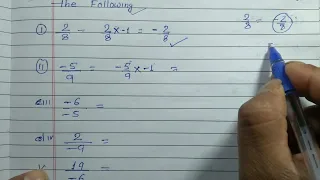 The Following
i) 2/8 - 2/8 × -1 = -2/8 ✓
2/8 = -2/8 :
ii) -5/9 = -5/9 × -1 =
iii) -6/-5 =
iv 2/-9 =
v. 19/-6 =